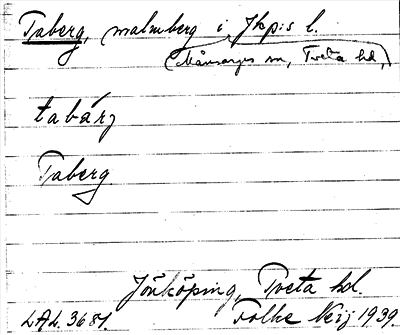 Taberg, malmberg i Jkp:s l.
(Månsarps sn, Tveta hd,)
tabárj
Taberg
Jönköping, Tveta hd.
LAL. 3681. Folke Neij 1939.